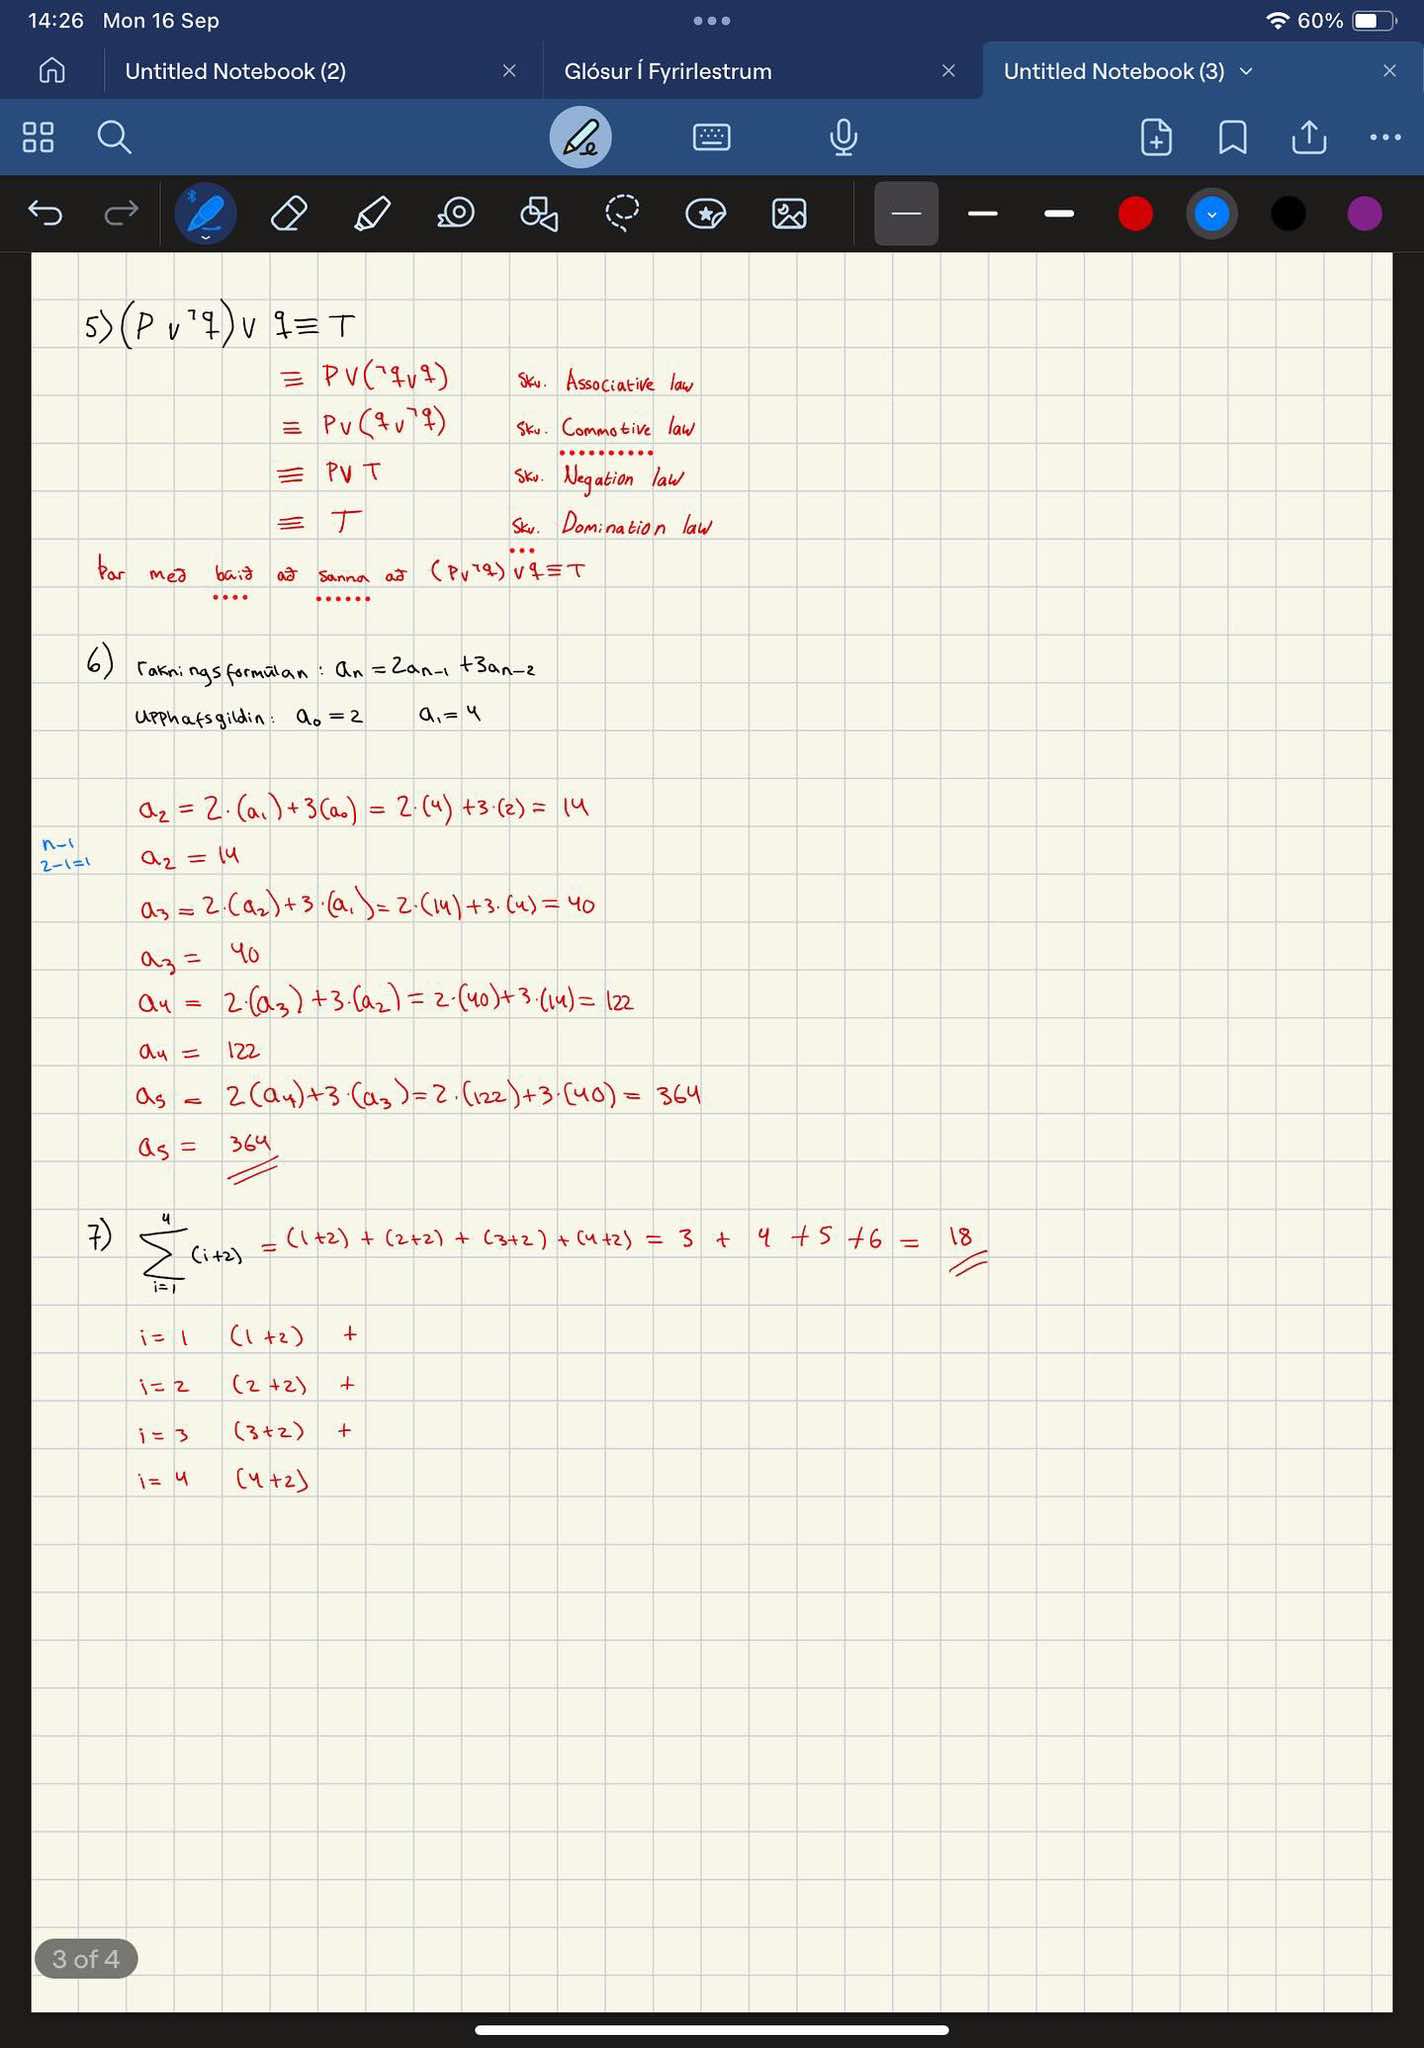 14:26 Mon 16 Sep
60%
Untitled Notebook (2)
Glósur Í Fyrirlestrum
Untitled Notebook (3)
5) (P ∨ ¬q) ∨ q ≡ T
≡ P ∨ (¬q ∨ q) Skv. Associative law
≡ P ∨ (q ∨ ¬q) Skv. Commotive law
≡ P ∨ T Skv. Negation law
≡ T Skv. Domination law
Þar með baið að sanna að (P ∨ ¬q) ∨ q ≡ T
6) rakningsformúlan: an = 2an-1 + 3an-2
Upphafsgildin: a0 = 2 a1 = 4
a2 = 2·(a1) + 3(a0) = 2·(4) + 3·(2) = 14
n-1
2-1=1
a2 = 14
a3 = 2·(a2) + 3·(a1) = 2·(14) + 3·(4) = 40
a3 = 40
a4 = 2·(a3) + 3·(a2) = 2·(40) + 3·(14) = 122
a4 = 122
a5 = 2(a4) + 3·(a3) = 2·(122) + 3·(40) = 364
a5 = 364
7) 4 ∑ i=1 (i+2) = (1+2) + (2+2) + (3+2) + (4+2) = 3 + 4 + 5 + 6 = 18
i = 1 (1+2) +
i = 2 (2+2) +
i = 3 (3+2) +
i = 4 (4+2)
3 of 4